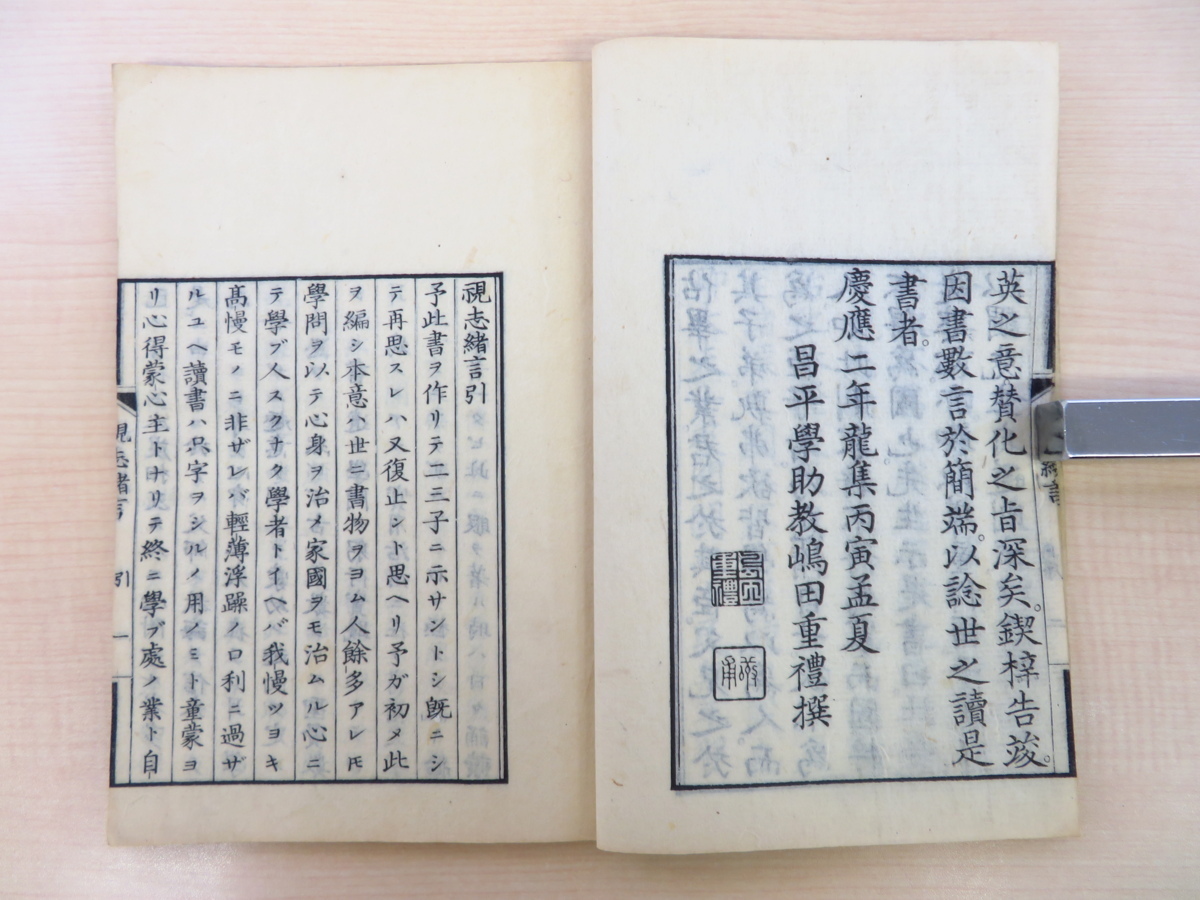 英之意贊化之旨深矣。鍥梓告竣。
因書數言於簡端。以諗世之讀是
書者。
慶應二年龍集丙寅孟夏
昌平學助教嶋田重禮撰
重禮
視志緒言引
予此書ヲ作リテ二三子ニ示サントシ旣ニシ
テ再思スレハ又復止ント思ヘリ予ガ初メ此
ヲ編シ本意ハ世ニ書物ヲヨム人餘多アレ𪜈
學問ヲ以テ心身ヲ治メ家國ヲモ治ムル心ニ
テ學ブ人スクナク學者トイヘバ我慢ツヨキ
髙慢モノニ非ザレバ輕薄浮躁ノ口利ニ過ザ
ルユヘ讀書ハ只字ヲシルノ用ノミト童蒙ヨ
リ心得蒙心主トナリテ終ニ學ブ處ノ業ト自
視志緒言
引
一
緒言